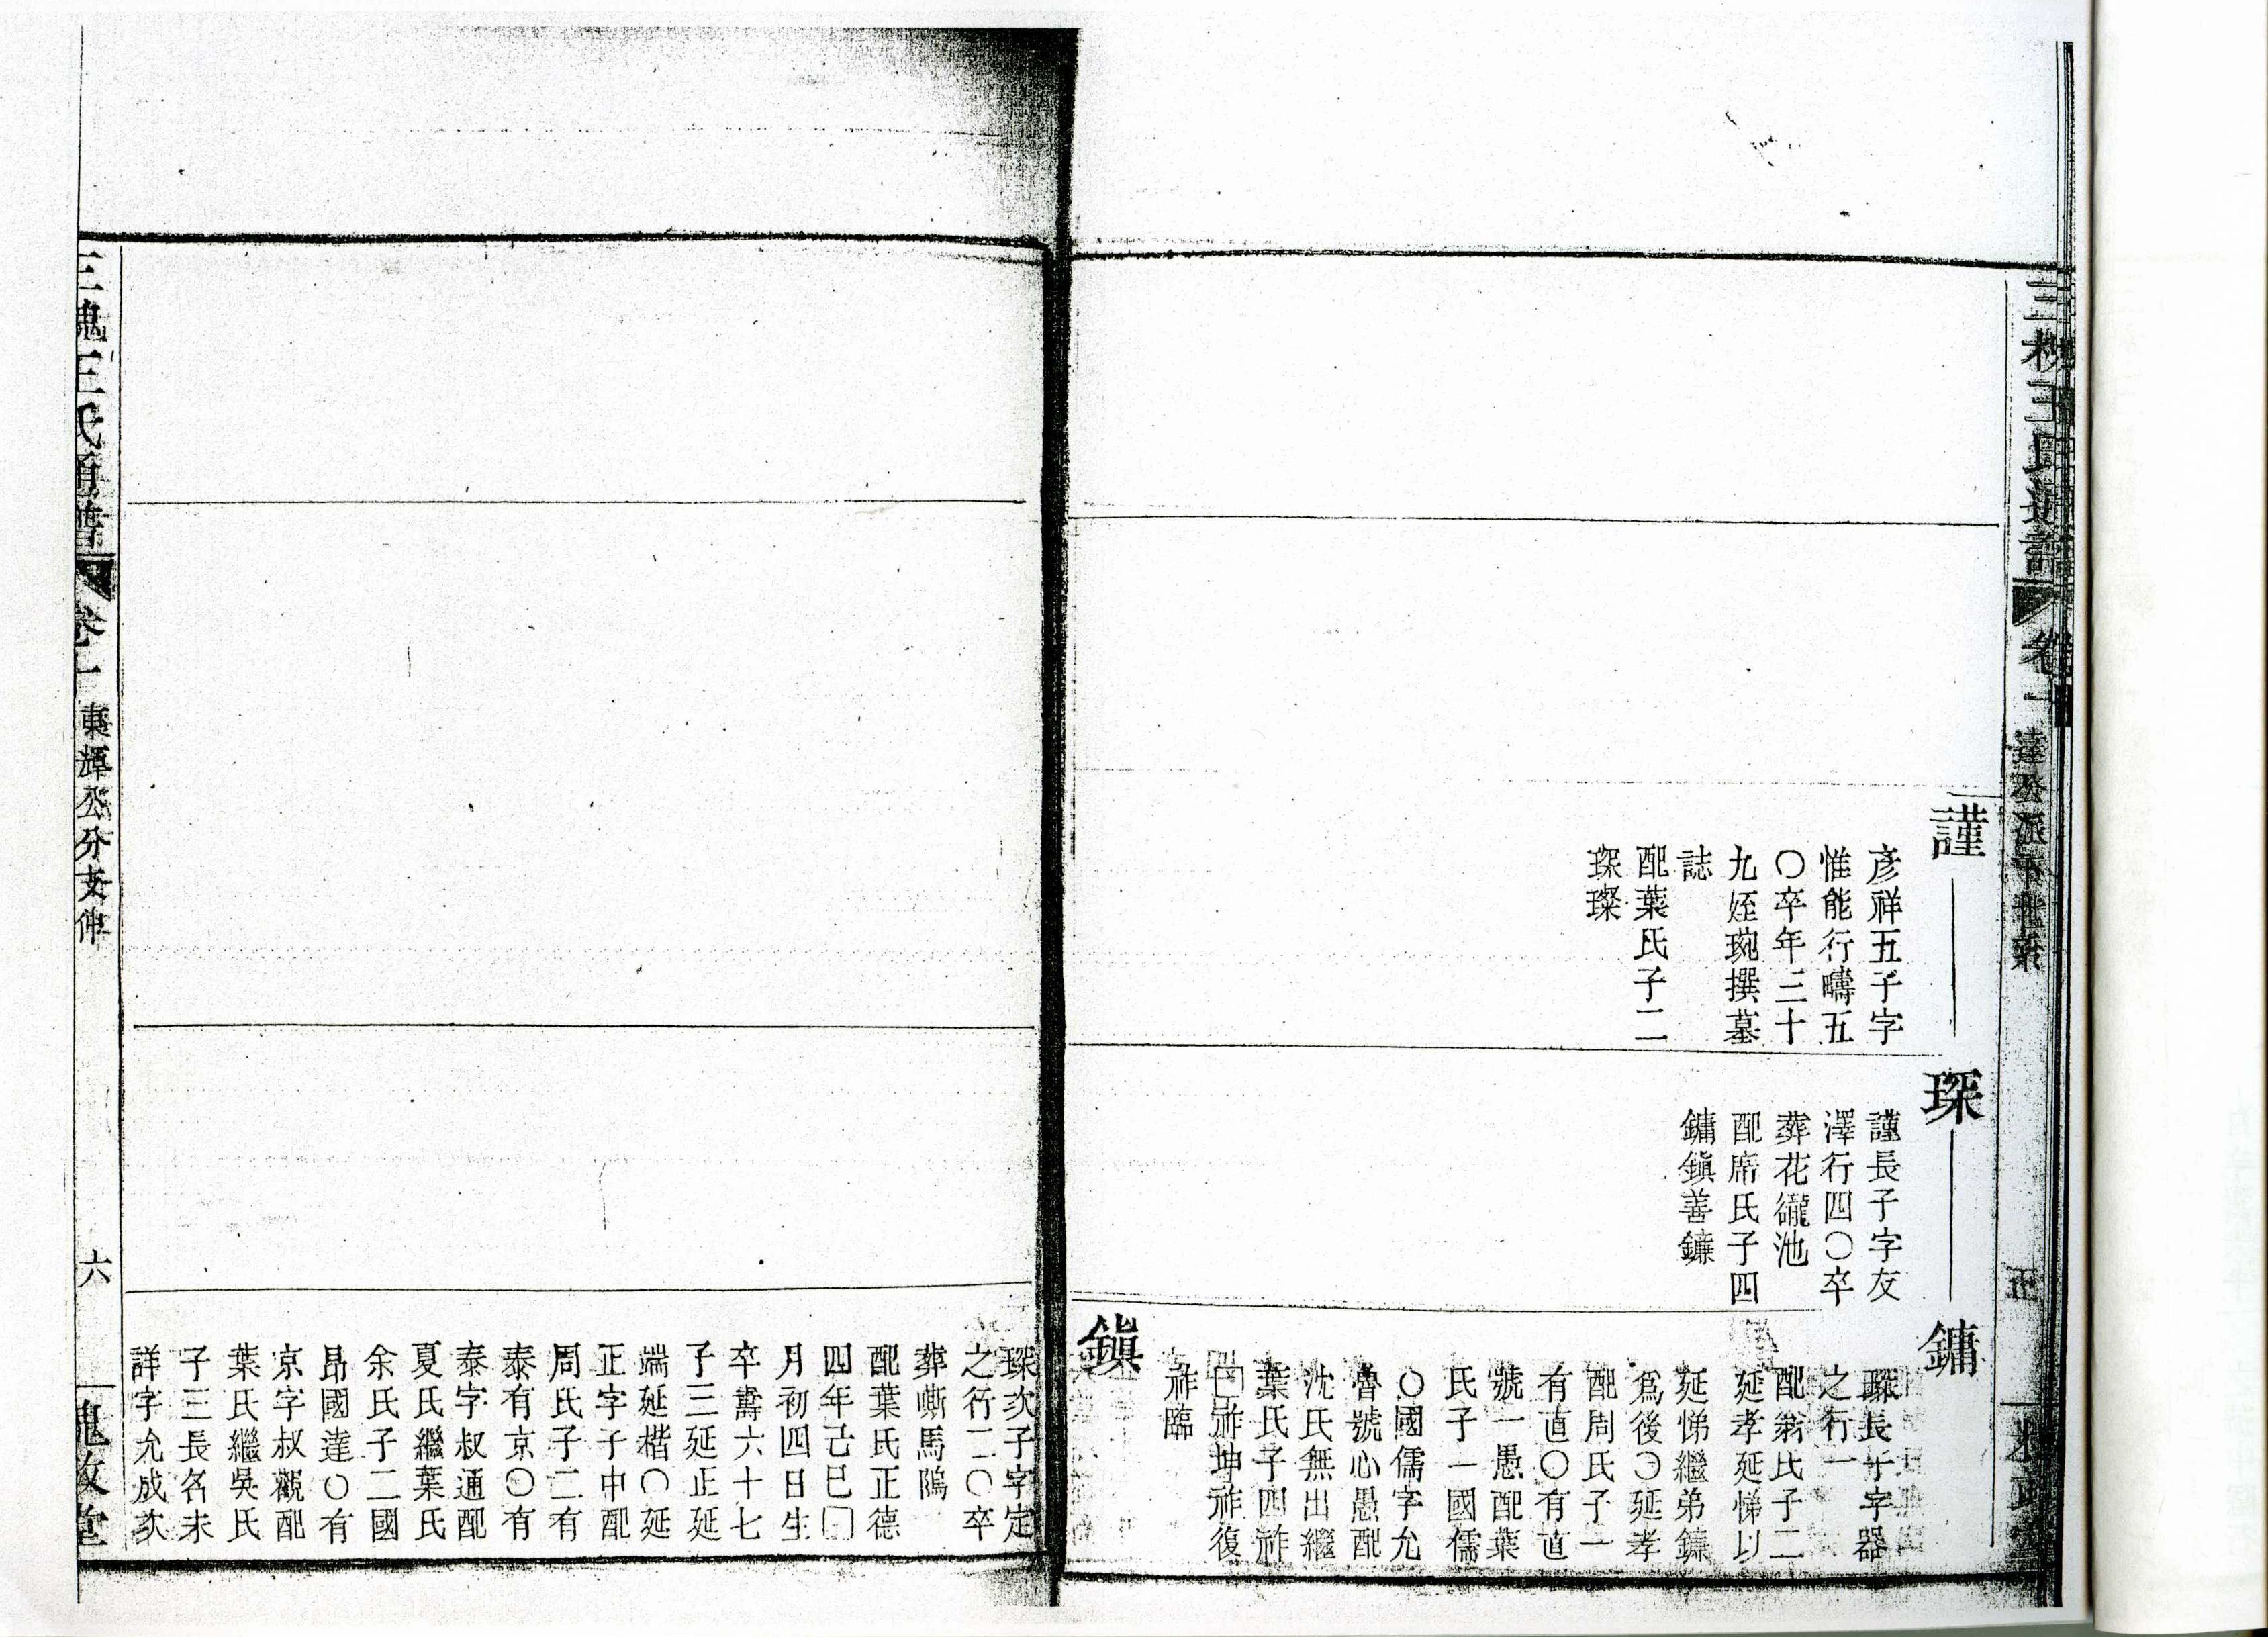 三槐王氏通譜
卷一
達公派下世系
正
謹
彥祥五子字
惟能行疇五
〇卒年三十
九姪琬撰墓
誌
配葉氏子二
琛璨
琛
謹長子字友
澤行四〇卒
葬花礲池
配席氏子四
鏞鎭善鐮
鏞
琛長子字器
之行一
配翁氏子二
延孝延悌以
延悌繼弟鐮
爲後〇延孝
配周氏子一
有直〇有直
號一愚配葉
氏子一國儒
〇國儒字允
魯號心愚配
沈氏無出繼
葉氏子四祚
□祚坤祚復
祚臨
鎭
琛次子字定
之行二〇卒
葬嘶馬隖
配葉氏正德
四年己巳□
月初四日生
卒壽六十七
子三延正延
端延楷〇延
正字子中配
周氏子二有
泰有京〇有
泰字叔通配
夏氏繼葉氏
余氏子二國
昂國達〇有
京字叔觀配
葉氏繼吳氏
子三長名未
詳字允成次
三槐王氏通譜
卷一
東輝公分支伸
六
槐敬堂